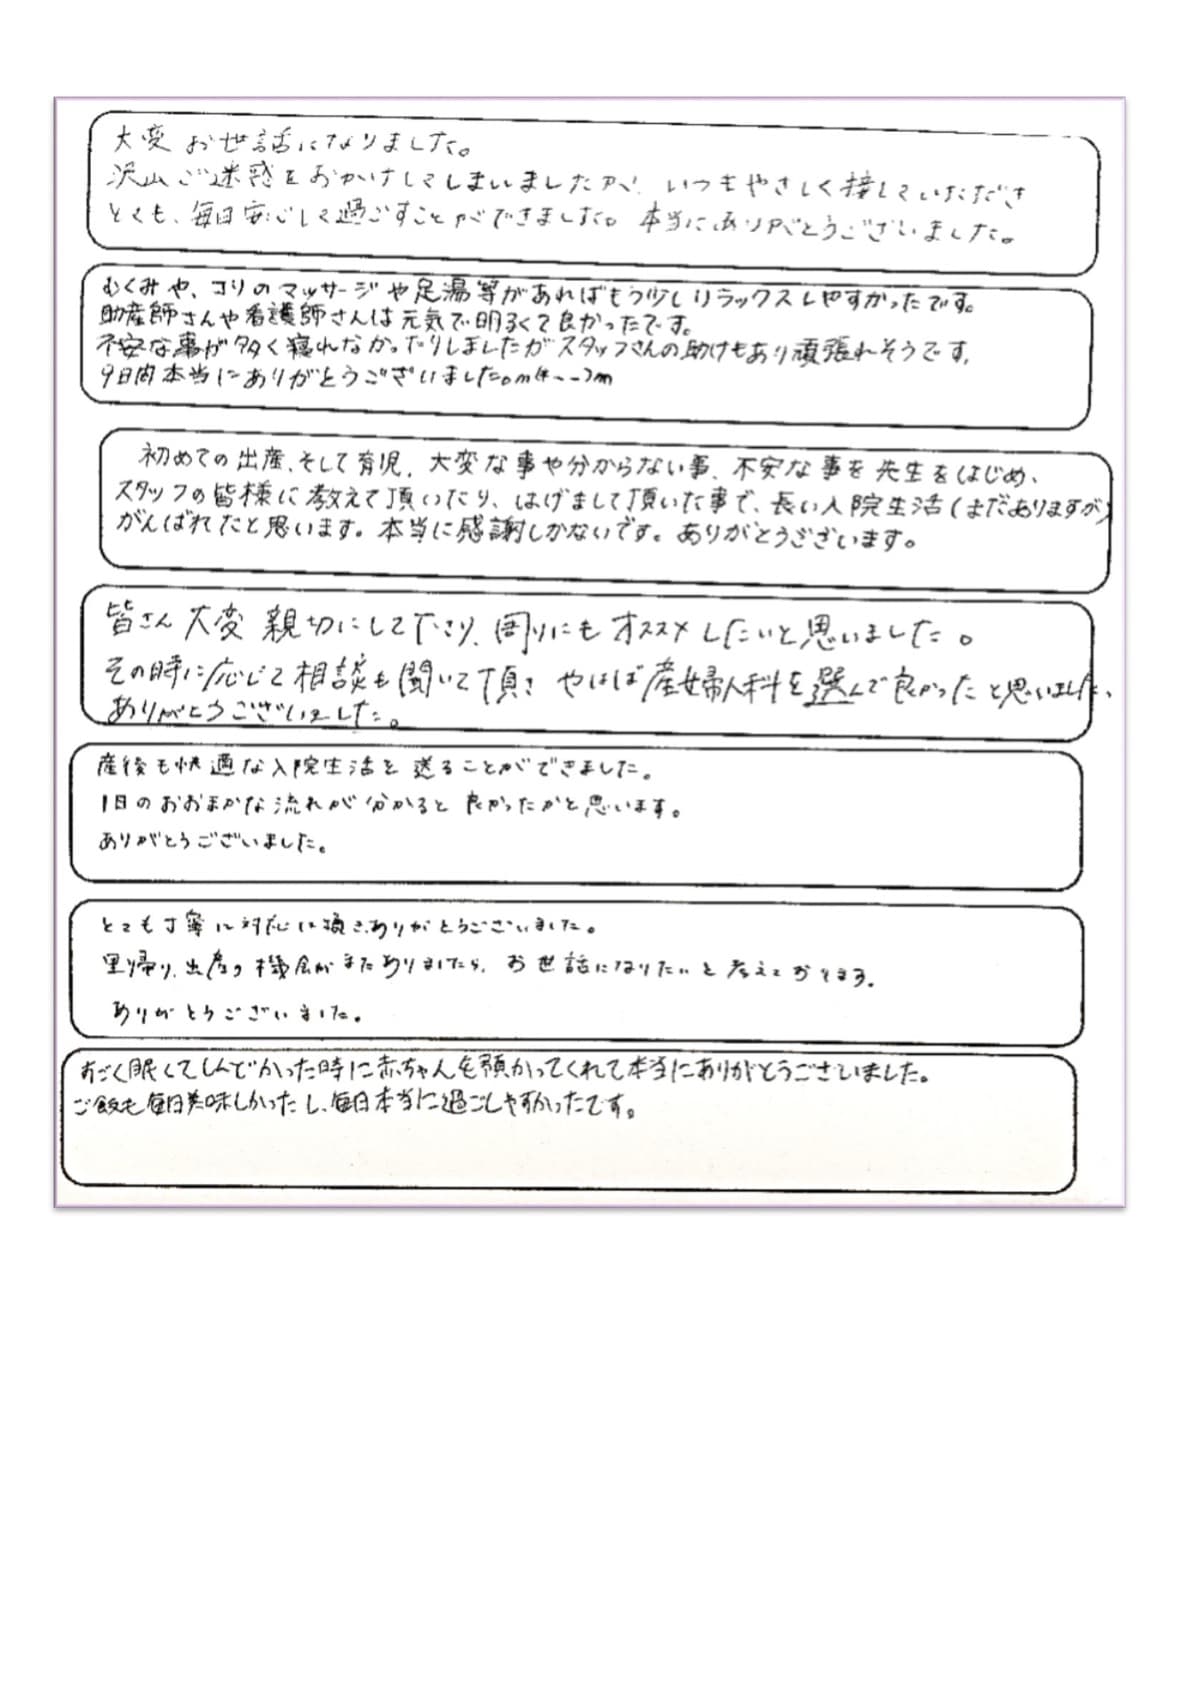 大変お世話になりました。
沢山ご迷惑をおかけしてしまいましたが、いつもやさしく接していただき
とても、毎日安心して過ごすことができました。本当にありがとうございました。
むくみや、コリのマッサージや足湯等があればもう少しリラックスしやすかったです。
助産師さんや看護師さんは元気で明るくて良かったです。
不安な事が多く寝れなかったりしましたがスタッフさんの助けもあり頑張れそうです。
9日間本当にありがとうございました。m(*_ _)m
初めての出産、そして育児、大変な事や分からない事、不安な事を先生をはじめ、
スタッフの皆様に教えて頂いたり、はげまして頂いた事で、長い入院生活(まだありますが)
がんばれたと思います。本当に感謝しかないです。ありがとうございます。
皆さん大変親切にして下さり、周りにもオススメしたいと思いました。
その時に応じて相談も聞いて頂き やはば産婦人科を選んで良かったと思いました、
ありがとうございました。
産後も快適な入院生活を送ることができました。
1日のおおまかな流れが分かると良かったかと思います。
ありがとうございました。
とても丁寧に対応頂きありがとうございました。
里帰り出産の機会がまたありましたら、お世話になりたいと考えております。
ありがとうございました。
すごく眠くてしんどかった時に赤ちゃんを預かってくれて本当にありがとうございました。
ご飯も毎日美味しかったし、毎日本当に過ごしやすかったです。